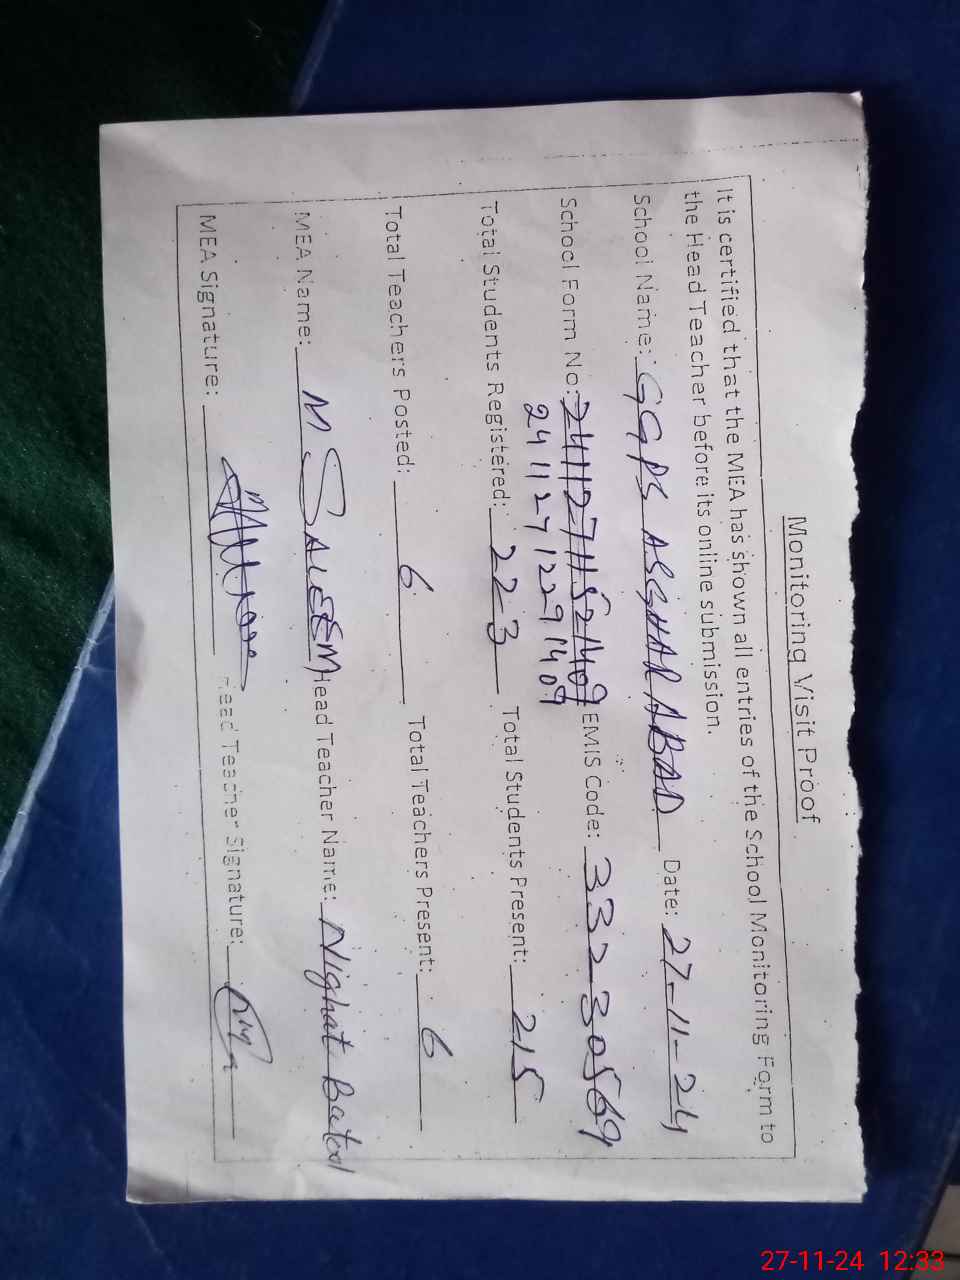 Monitoring Visit Proof
It is certified that the MEA has shown all entries of the School Monitoring Form to
the Head Teacher before its online submission.
School Name: GGPS ASGHAR ABAD Date: 27-11-24
School Form No: EMIS Code: 33230569
24112712291409
Total Students Registered: 223 Total Students Present: 215
Total Teachers Posted: 6 Total Teachers Present: 6
MEA Name: M SALEEM Head Teacher Name: Nighat Batool
MEA Signature: Head Teacher Signature:
27-11-24 12:33